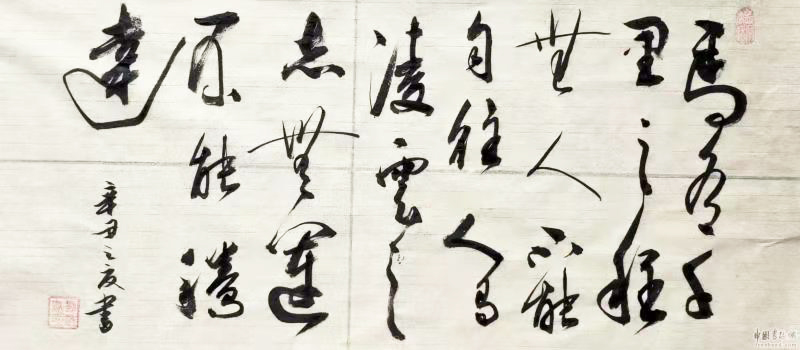 馬有千
里之程
無人不能
自往人有
凌雲之
志無運
能騰
達
辛丑之夏書